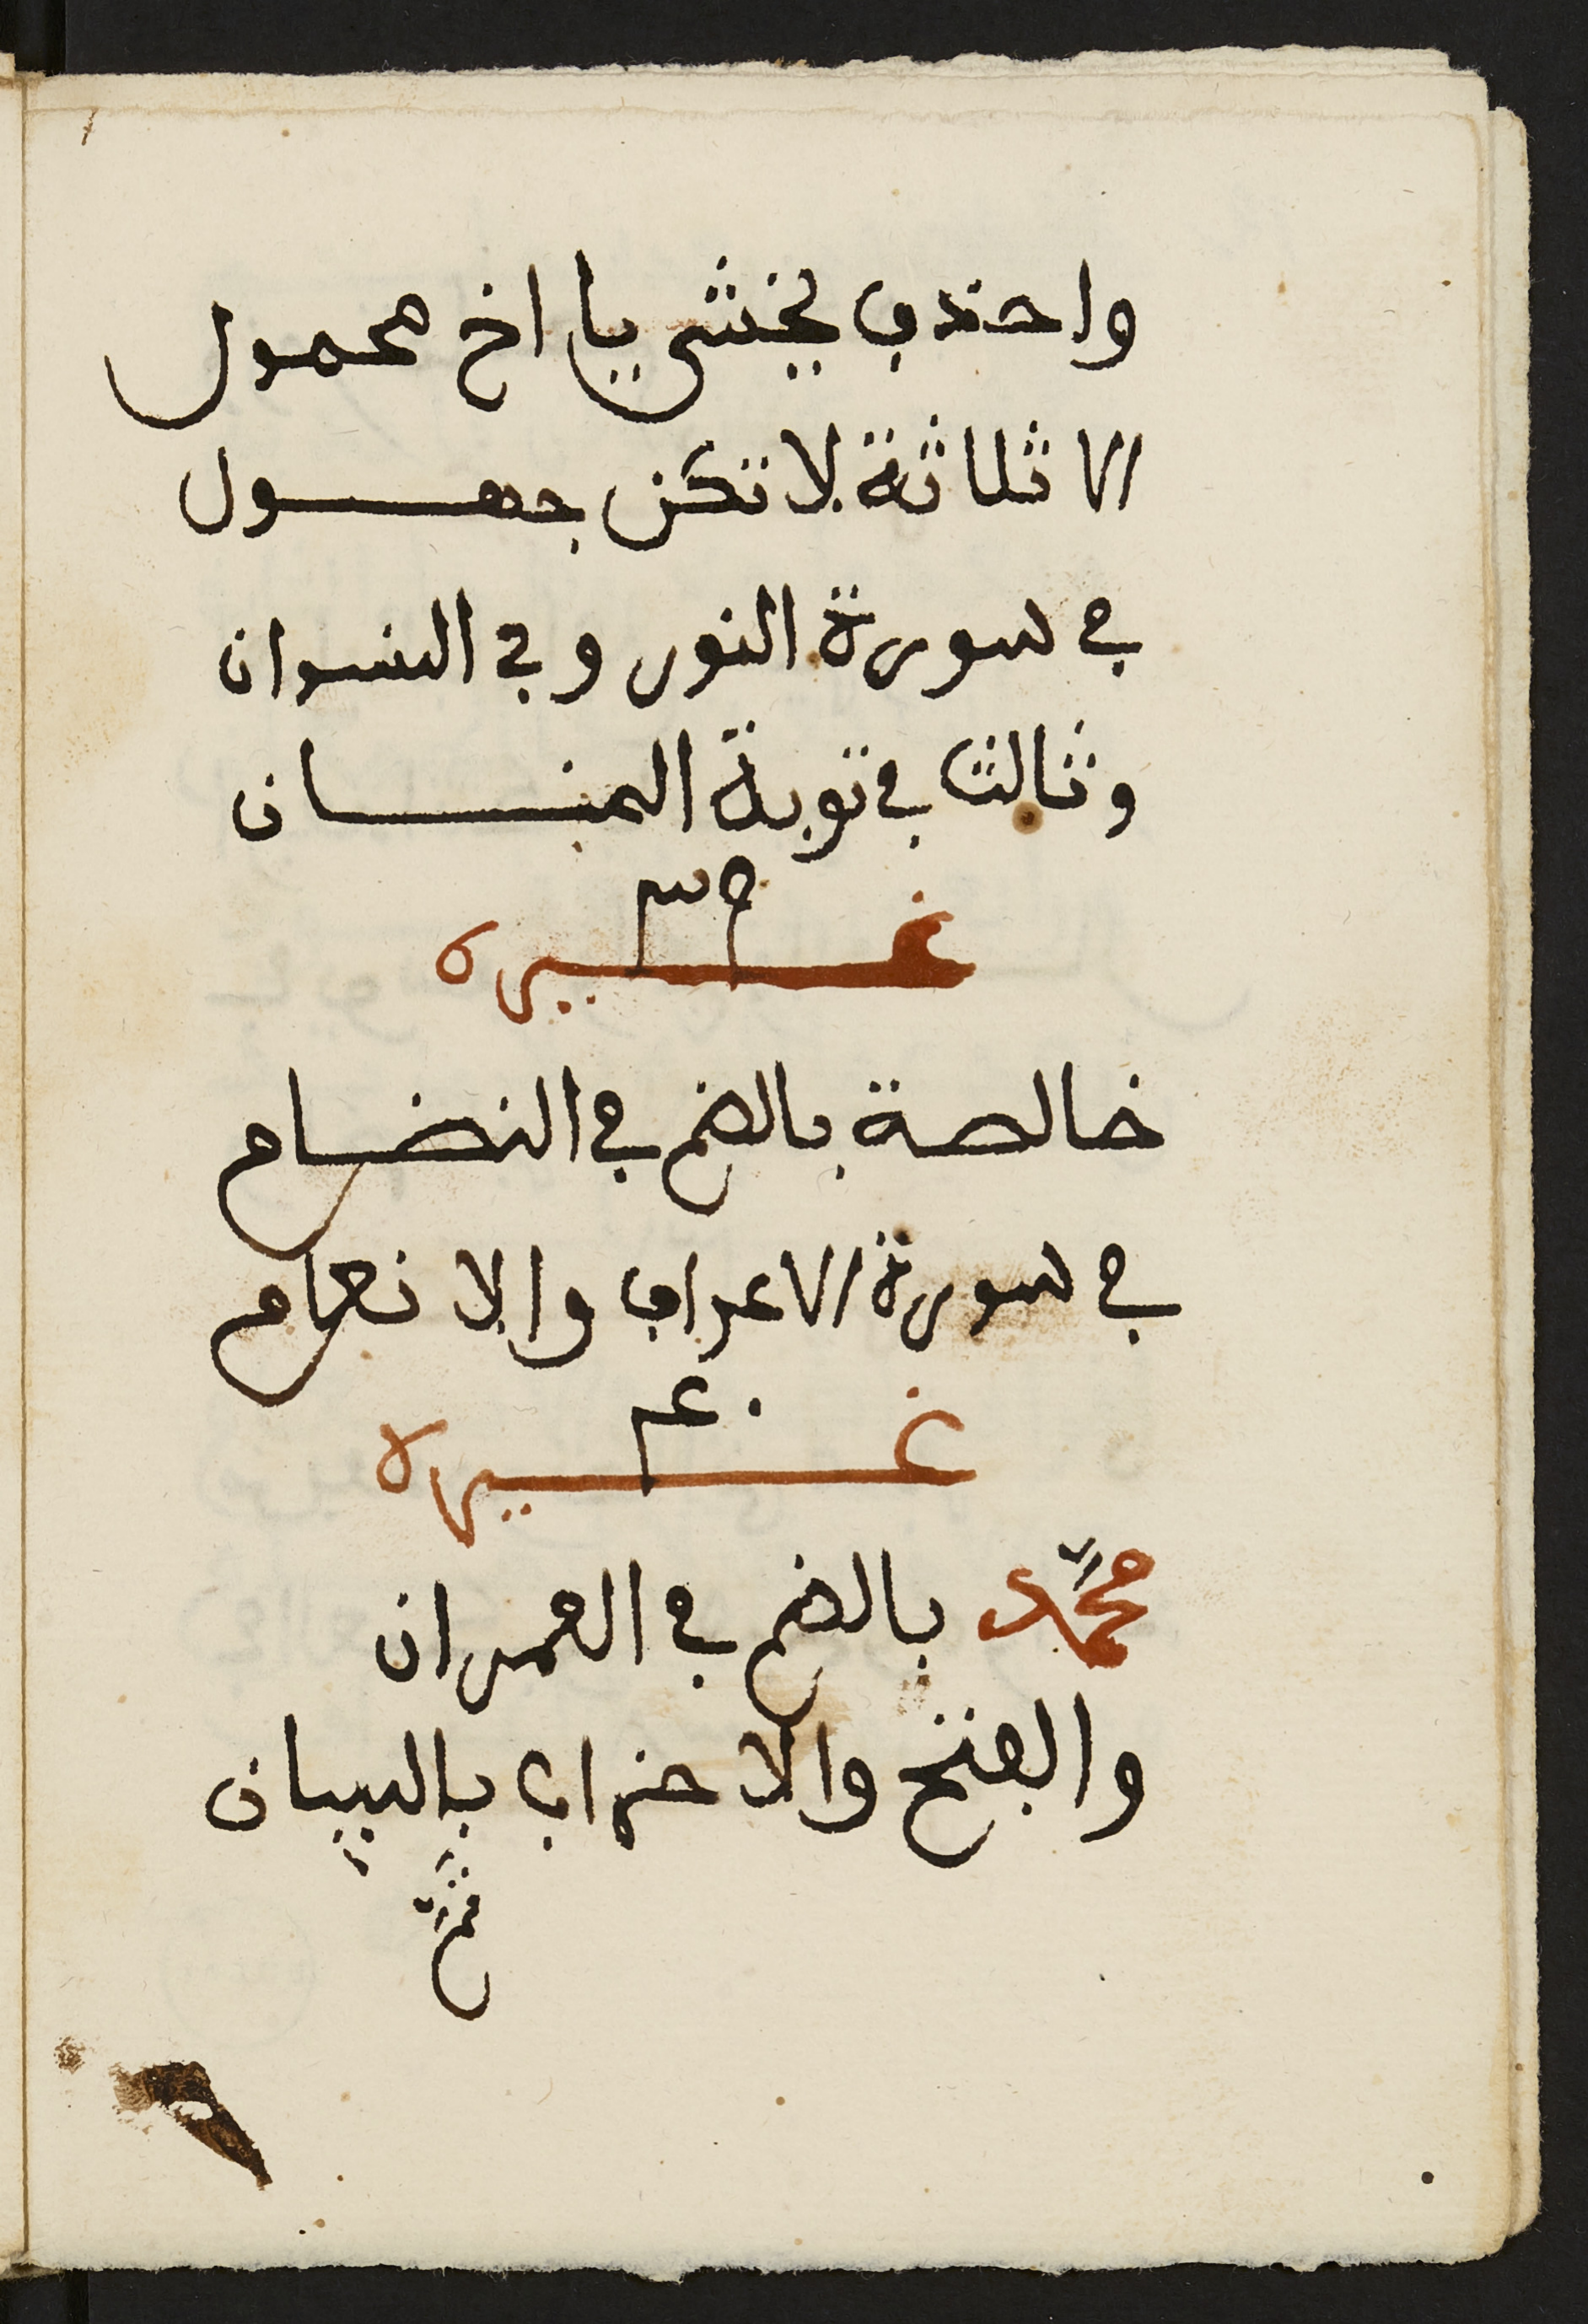 واحذف يخشى يا اخ محمول
الا ثلاثة لا تكن جهول
في سورة النور وفي النسوان
وثالثا في توبة المنان
غيره
خالصة بالضم في النضام
في سورة الاعراف والانعام
غيره
محمّد بالضم في العمران
والفتح والاحزاب بالبيان